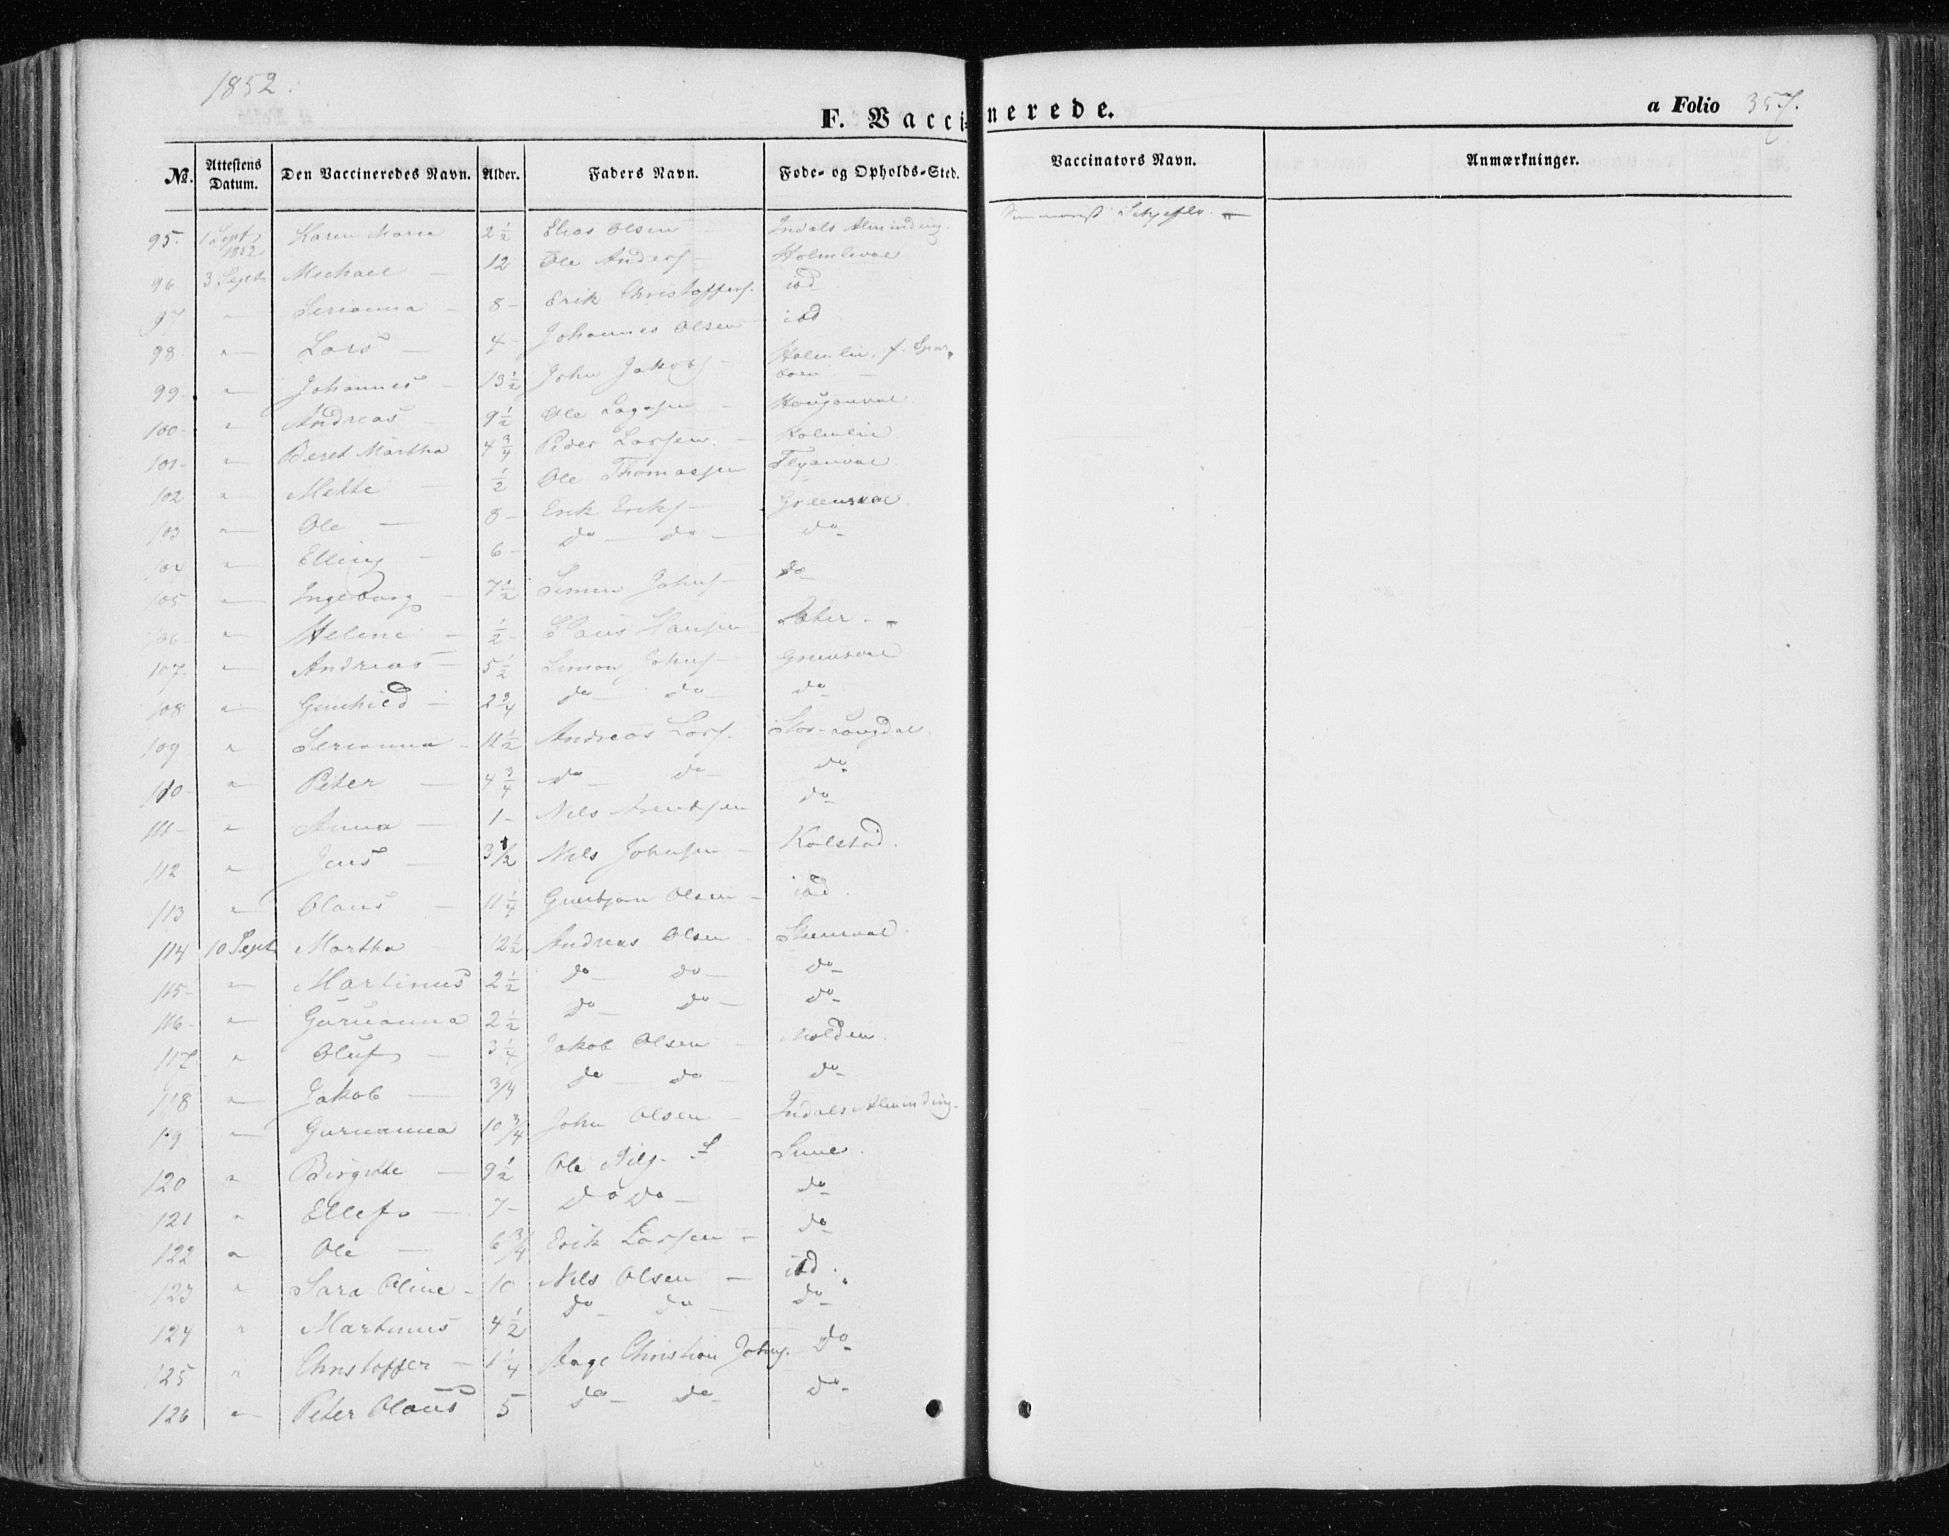 1852.
F. Vaccinerede.
a Folio 357.
No. Attestens Datum. Den Vaccineredes Navn. Alder. Faders Navn. Føde- og Opholds-Sted. Vaccinators Navn. Anmærkninger.
95. 1 Sept 1852 Karen Maria 2 1/2 Elias Olsen Indals Alminding.
96 3 Sept Michael — 12 Ole Anders — Holmlival
97 " Serianna — 8 — Erik Christoffers. ibd
98 " Lars — 4 — Johannes Olsen ibd
99 " Johannes — 13 1/2 John Jakobs — Holmlin, f. Sparboen —
100 " Andreas 9 1/2 Ole — Hauganval
101 " Beret Martha 4 3/4 Peder Larsen. — Holmlin
102 " Mette — 1/2 Ole Thomassen
103 " Ole — 8 — Erik Eriks — Græensval.
104 " Elling — 6 — do — do — do
105 " Ingeborg — 7 1/2 Simen Johns — do
106 " Helene — 1/2 Claus Hansen — Sæter.
107 " Andreas — 5 1/2 Simon Johns — Grensval
108 " Gunhild — 2 3/4 do — do — do
109 " Serianna — 11 1/2 Andreas Lars. Stor-Langdal.
110 " Peter — 4 3/4 do — do — do
111 — " Anna — 1 — Nils Arentsen do
112 " Jens — 3 1/2 Nils Johnsen — Kolstad.
113 " Olaus — 11 1/4 Gunbjørn Olsen — ibd.
114 10 Sept Martha — 12 1/2 Andreas Olsen —
115 — " Martinus 2 1/2 do — do — do
116 — " Gurianna 2 1/2 do — do — do
117 " Oluf — 3 1/4 Jakob Olsen — Molden.
118 " Jakob — 3/4 do — do — do
119 " Gurianna 10 3/4 John Olsen — Indals Alminding.
120 " Birgitte — 9 1/2 Ole Nils. Sune.
121 " Ellef — 7 — do do — do
122 " Ole — 6 3/4 Erik Larsen — do
123 " Sara Oline — 10 Nils Olsen — ibd.
124 " Martinus 4 1/2 do — do — do
125 " Christoffer — 1 1/4 Aage Christian Johns. do
126 " Peter Olaus 5 do — do — do